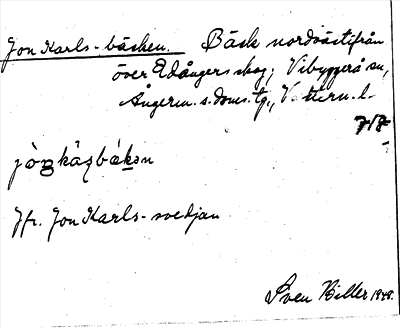 Jon Karls-bäcken. Bäck nordvästifrån
över Edångers skog; Vibyggerå sn,
Ångerm. s. doms. tg., V. ttern. l.
jò̀nkàɳbækən
Jfr. Jon Karls-svedjan
Sven Biller 1948.